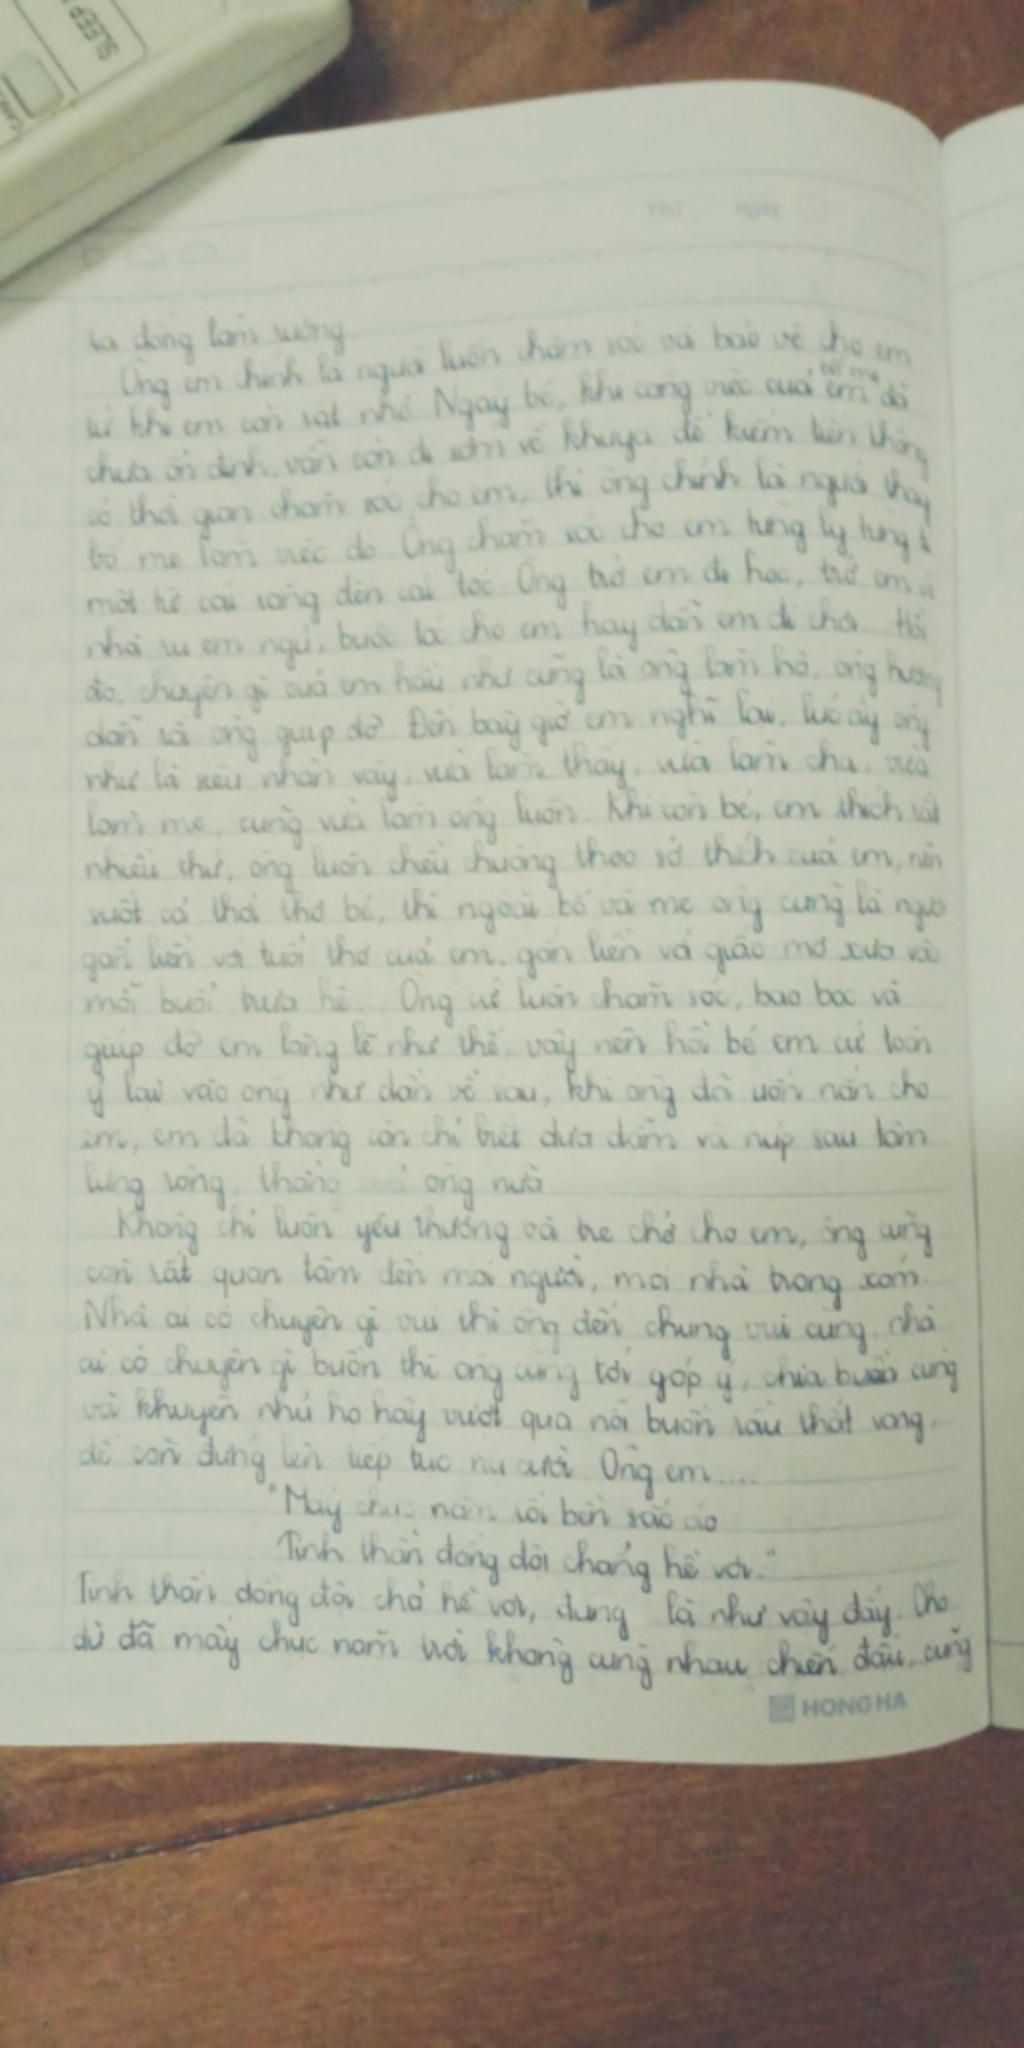 SLEEP
Thứ ngày
ra đồng làm ruộng
Ông em chính là người luôn chăm sóc và bảo vệ cho em
bố mẹ
từ khi em còn rất nhỏ. Ngày bé, khi công việc của em đó
chưa ổn định, vẫn còn đi sớm về khuya để kiếm tiền không
có thời gian chăm sóc cho em, thì ông chính là người thay
bố mẹ làm việc đó. Ông chăm sóc cho em từng ly từng tí
một từ cái răng đến cái tóc. Ông trở em đi học, trở em về
nhà ru em ngủ, buộc tóc cho em hay dẫn em đi chơi. Hồi
đó, chuyện gì của em hầu như cũng là ông làm hộ, ông hướng
dẫn rồi ông giúp đỡ. Đến bây giờ em nghĩ lại, lúc ấy ông
như là siêu nhân vậy, vừa làm thầy, vừa làm cha, vừa
làm mẹ, cũng vừa làm ông luôn. Khi còn bé, em thích rất
nhiều thứ, ông luôn chiều chuộng theo sở thích của em, nên
suốt cả thời thơ bé, thì ngoài bố và mẹ ông cũng là người
gắn liền với tuổi thơ của em, gắn liền và giấc mơ xưa và
mỗi buổi trưa hè... Ông cứ luôn chăm sóc, bao bọc và
giúp đỡ em lặng lẽ như thế, vậy nên hồi bé em cứ toàn
ỷ lại vào ông như dần về sau, khi ông đã uốn nắn cho
em, em đã không còn chỉ biết dựa dẫm và núp sau tấm
lưng rộng, thẳng ông nữa
Không chỉ luôn yêu thương và che chở cho em, ông cũng
còn rất quan tâm đến mọi người, mọi nhà trong xóm.
Nhà ai có chuyện gì vui thì ông đến chung vui cùng, nhà
ai có chuyện gì buồn thì ông cũng tới góp ý, chia buồn cùng
và khuyên nhủ họ hãy vượt qua nỗi buồn sầu thất vọng,
để còn đứng lên tiếp tục nụ cười. Ông em....
"Mấy chục năm rời bên sắc áo
Tinh thần đồng đội chẳng hề vơi."
Tinh thần đồng đội chả hề vơi, đúng là như vậy đấy. Cho
dù đã mấy chục năm trời không cùng nhau chiến đấu, cũng
HONG HA